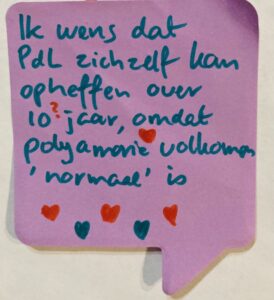 Ik wens dat
PdL zichzelf kan
opheffen over
10? jaar, omdat
polyamorie volkomen
'normaal' is